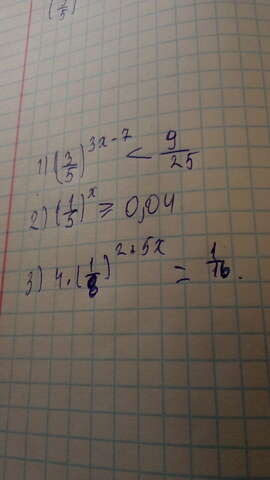 (2/5)
1) (3/5)^(3x-7) < 9/25
2) (1/5)^x ≥ 0,04
3) 4·(1/8)^(2+5x) = 1/16.